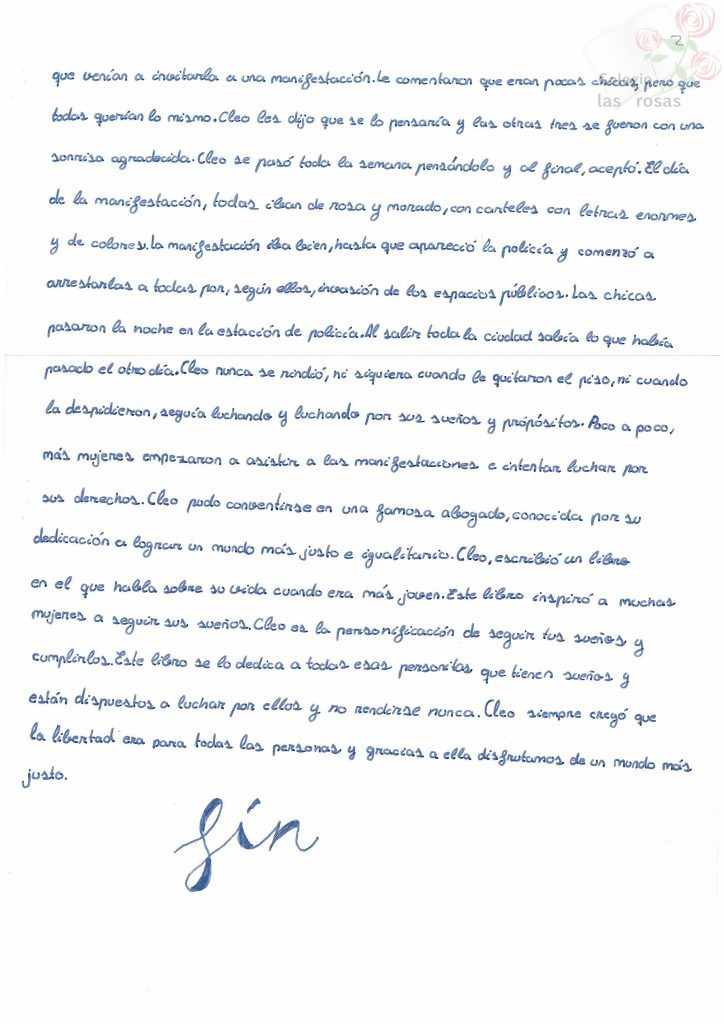 2
Colegio
las rosas
que venían a invitarla a una manifestación. Le comentaron que eran pocas chicas, pero que
todas querían lo mismo. Cleo les dijo que se lo pensaría y las otras tres se fueron con una
sonrisa agradecida. Cleo se pasó toda la semana pensándolo y al final, aceptó. El día
de la manifestación, todas iban de rosa y morado, con carteles con letras enormes
y de colores. La manifestación iba bien, hasta que apareció la policía y comenzó a
arrestarlas a todas por, según ellos, invasión de los espacios públicos. Las chicas
pasaron la noche en la estación de policía. Al salir toda la ciudad sabía lo que había
pasado el otro día. Cleo nunca se rindió, ni siquiera cuando le quitaron el piso, ni cuando
la despidieron, seguía luchando y luchando por sus sueños y própósitos. Poco a poco,
más mujeres empezaron a asistir a las manifestaciones e intentar luchar por
sus derechos. Cleo pudo conventirse en una famosa abogado, conocida por su
dedicación a lograr un mundo más justo e igualitario. Cleo, escribió un libro
en el que habla sobre su vida cuando era más joven. Este libro inspiró a muchas
mujeres a seguir sus sueños. Cleo es la personificación de seguir tus sueños y
cumplirlos. Este libro se lo dedica a todas esas personitas que tienen sueños y
están dispuestos a luchar por ellos y no rendirse nunca. Cleo siempre creyó que
la libertad era para todas las personas y gracias a ella disfrutamos de un mundo más
justo.
fin